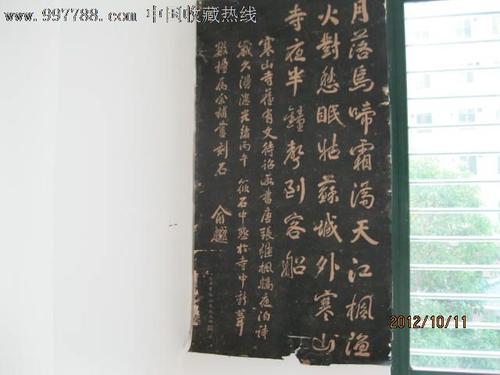 www.997788.com 中国收藏热线
月落烏啼霜滿天江楓漁
火對愁眠姑蘇城外寒山
寺夜半鐘聲到客船
寒山寺舊有文待詔所書唐張繼楓橋夜泊詩
歲久漫漶光緒丙午筱石中丞於寺中新葺
數楹屬余補書刻石
俞樾
2012/10/11